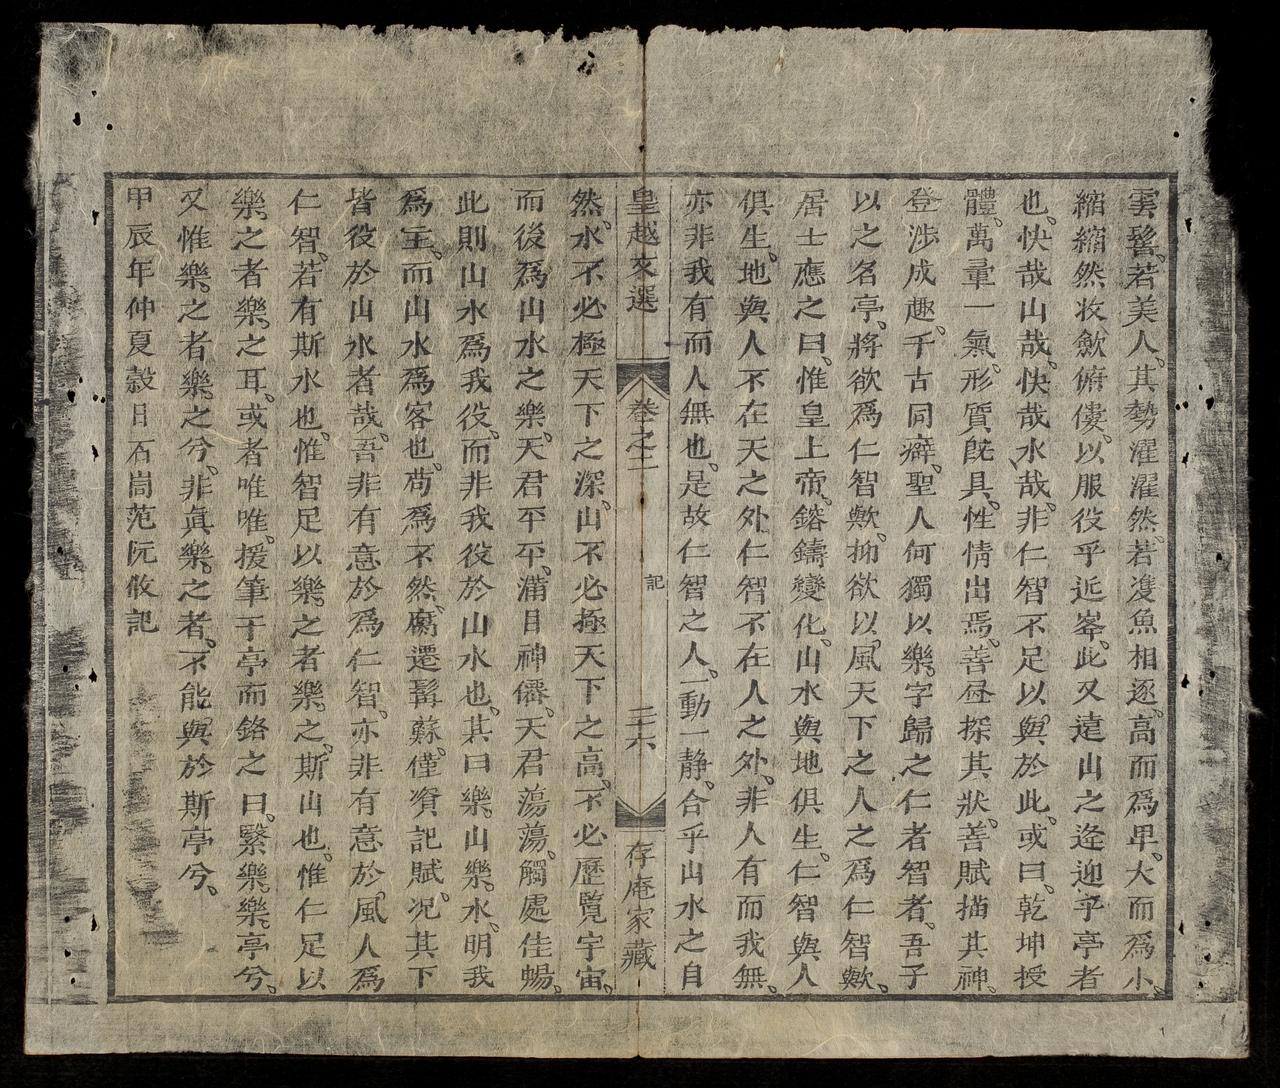 雲鬟。若美人。其勢濯濯然。若𩀱魚相逐。高而爲卑。大而爲小。
縮縮然收斂俯僂。以服役乎近峯。此又遠山之逢迎乎亭者
也。快哉山哉。快哉水哉。非仁智不足以與於此。或曰。乾坤授
體。萬彙一氣。形質旣具。性情出焉。善昼探其狀。善賦描其神。
登涉成趣。千古同癖。聖人何獨以樂字歸之仁者智者。吾子
以之名亭。將欲爲仁智歟。抑欲以風天下之人之爲仁智歟。
居士應之曰。惟皇上帝。鎔鑄變化。山水與地俱生。仁智與人
俱生。地與人不在天之外。仁智不在人之外。非人有而我無。
亦非我有而人無也。是故仁智之人。一動一靜。合乎山水之自
皇越文選 卷之二 記 三十六 存庵家藏
然。水不必極天下之深。山不必極天下之高。不必歷覽宇宙。
而後爲山水之樂。天君平平。滿目神僊。天君蕩蕩。觸處佳暢。
此則山水爲我役。而非我役於山水也。其曰樂山樂水。明我
爲主。而山水爲客也。苟爲不然。腐遷髯蘇。僅資記賦。况其下
皆役於山水者哉。吾非有意於爲仁智。亦非有意於風人爲
仁智。若有斯水也。惟智足以樂之者樂之。斯山也。惟仁足以
樂之者樂之耳。或者唯唯。援筆于亭而銘之曰。繄樂樂亭兮。
又惟樂之者樂之兮。非眞樂之者。不能與於斯亭兮。
甲辰年仲夏穀日石峝范阮攸記